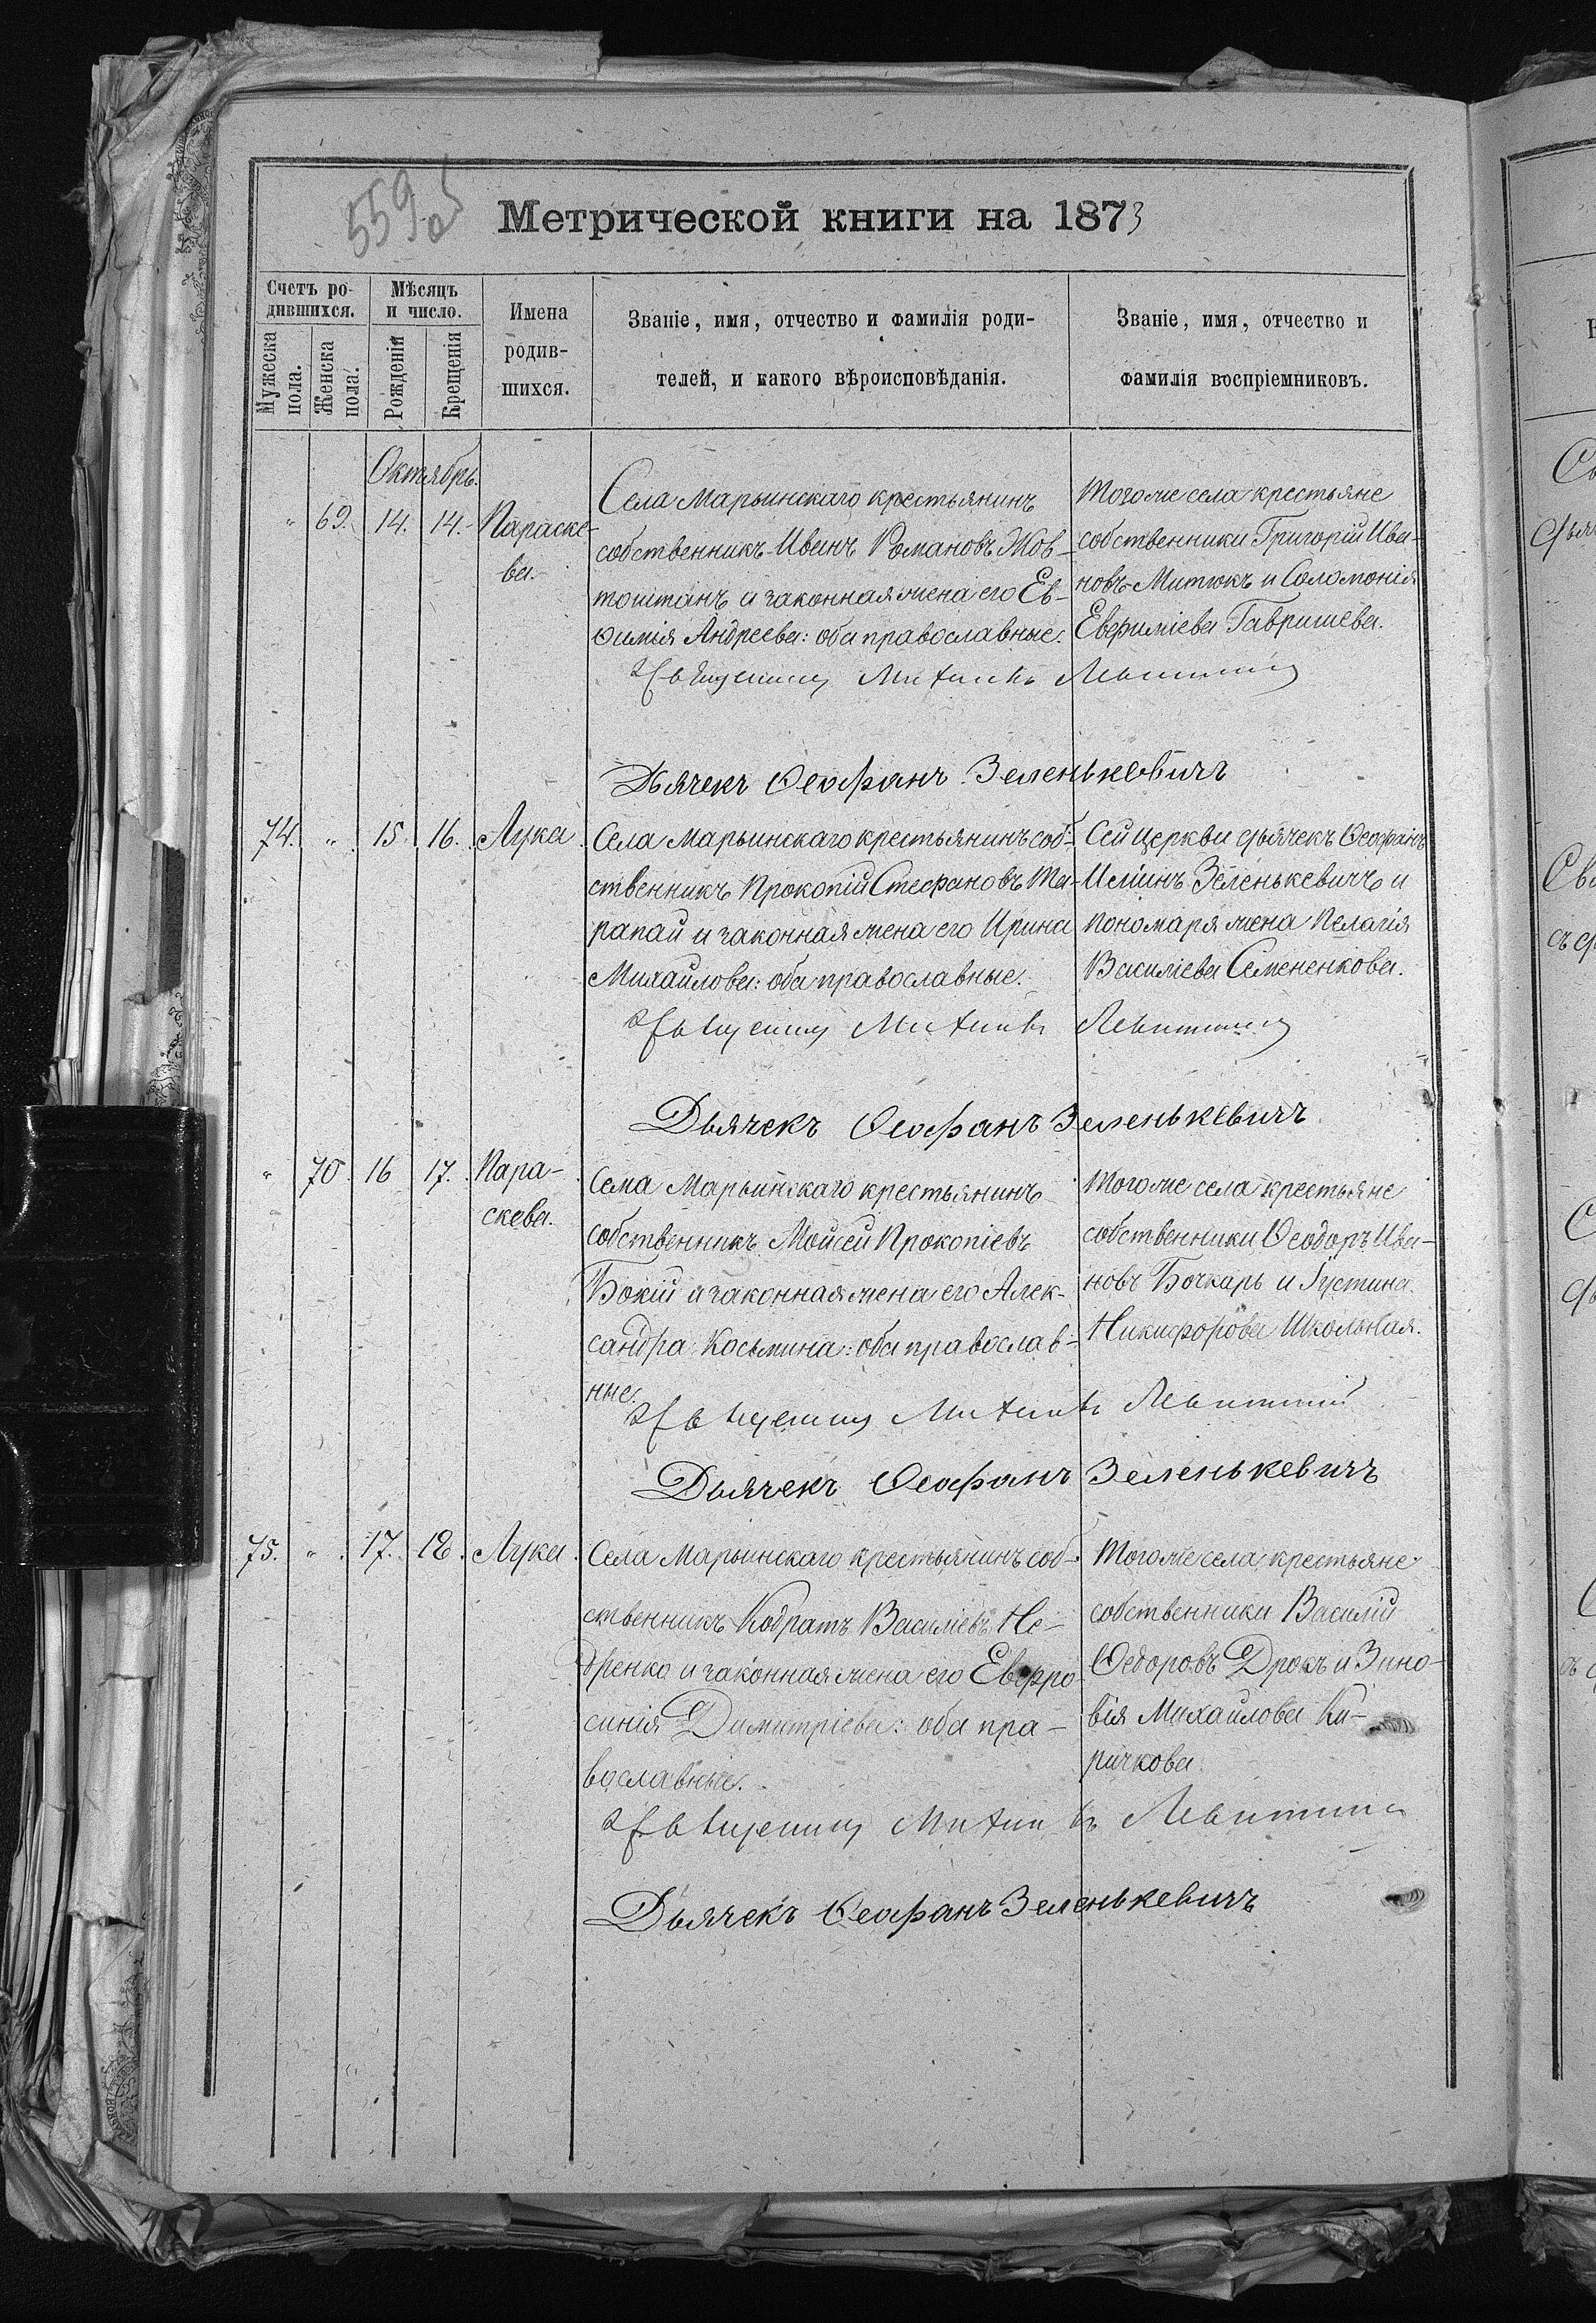 559 об
Метрической книги на 1873
Счетъ ро-
дившихся.
Мѣсяцъ
и число.
Мужеска
пола.
Женска
пола.
Рожденія
Крещенія
Имена
родив-
шихся.
Званіе, имя, отчество и фамилія роди-
телей, и какого вѣроисповѣданія.
Званіе, имя, отчество и
фамилія воспріемниковъ.
Октябрь.
" 69. 14. 14. Параске-
ва.
Села Марьинскаго крестьянинъ
собственникъ Иванъ Романовъ Жов-
тоштанъ и законная жена его Ев-
ѳимія Андреева: оба православные.
Тогоже села крестьяне
собственники Григорій Ива-
новъ Митюкъ и Соломонія
Евфиміева Гавришева.
Священникъ Левитскій
Дьячекъ Ѳеофанъ Зеленькевичъ
74. " 15. 16. Лука.
Села Марьинскаго крестьянинъ соб-
ственникъ Прокопій Стефановъ Та-
рапай и законная жена его Ирина
Михайлова: оба православные.
Сей церкви дьячекъ Ѳеофанъ
Иліинъ Зеленькевичъ и
пономаря жена Пелагія
Василіева Семененкова.
Священникъ Левитскій
Дьячекъ Ѳеофанъ Зеленькевичъ
" 70. 16 17. Пара-
скева.
Села Марьинскаго крестьянинъ
собственникъ Мойсей Прокопіевъ
Бокій и законная жена его Алек-
сандра Косьмина: оба православ-
ные.
Тогоже села крестьяне
собственники Ѳеодоръ Ива-
новъ Бочкарь и Іустина
Никифорова Школьная.
Священникъ Левитскій
Дьячекъ Ѳеофанъ Зеленькевичъ
75. " 17. 18. Лука.
Села Марьинскаго крестьянинъ соб-
ственникъ Кодратъ Василіевъ Не-
дренко и законная жена его Евфро-
синія Димитріева: оба пра-
вославные.
Тогоже села крестьяне
собственники Василій
Ѳедоровъ Дрокъ и Зино-
вія Михайлова Ки-
ричкова.
Священникъ Левитскій
Дьячекъ Ѳеофанъ Зеленькевичъ